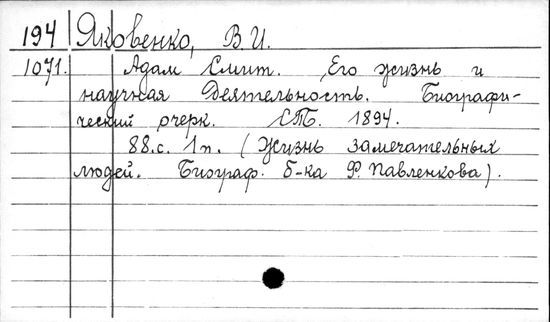 194 Яковенко, В.И.
1071. Адам Смит. Его жизнь и
научная деятельность. Биографи-
ческий очерк. СПБ. 1894.
88.с. 1п. (Жизнь замечательных
людей. Биограф. б-ка Ф. Павленкова).